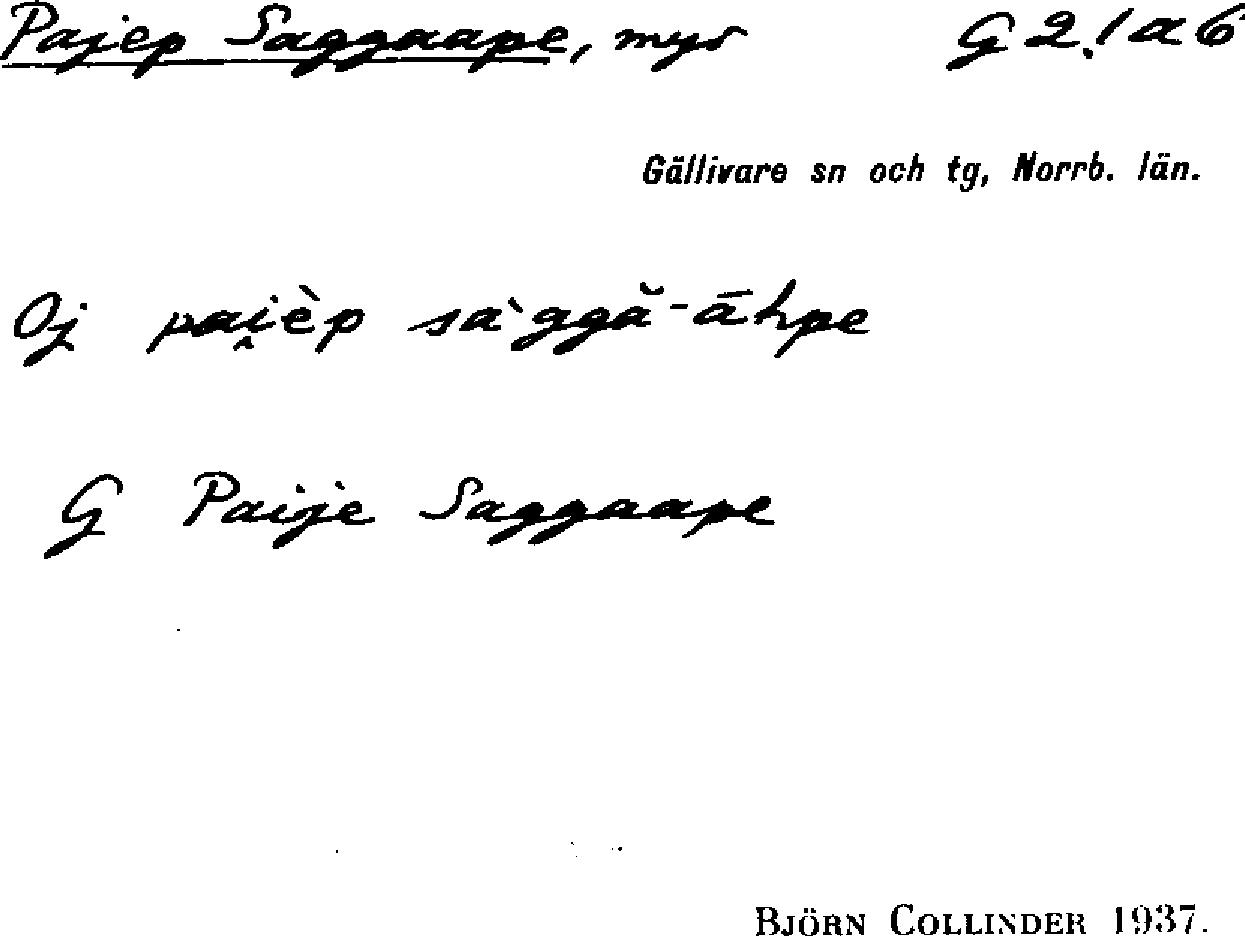 Pajep Saggaape, myr G 2.1 a 6
Gällivare sn och tg, Norrb. län.
Oj pai̯èp sàggă-āhpe
G Paije Saggaape
BJÖRN COLLINDER 1937.